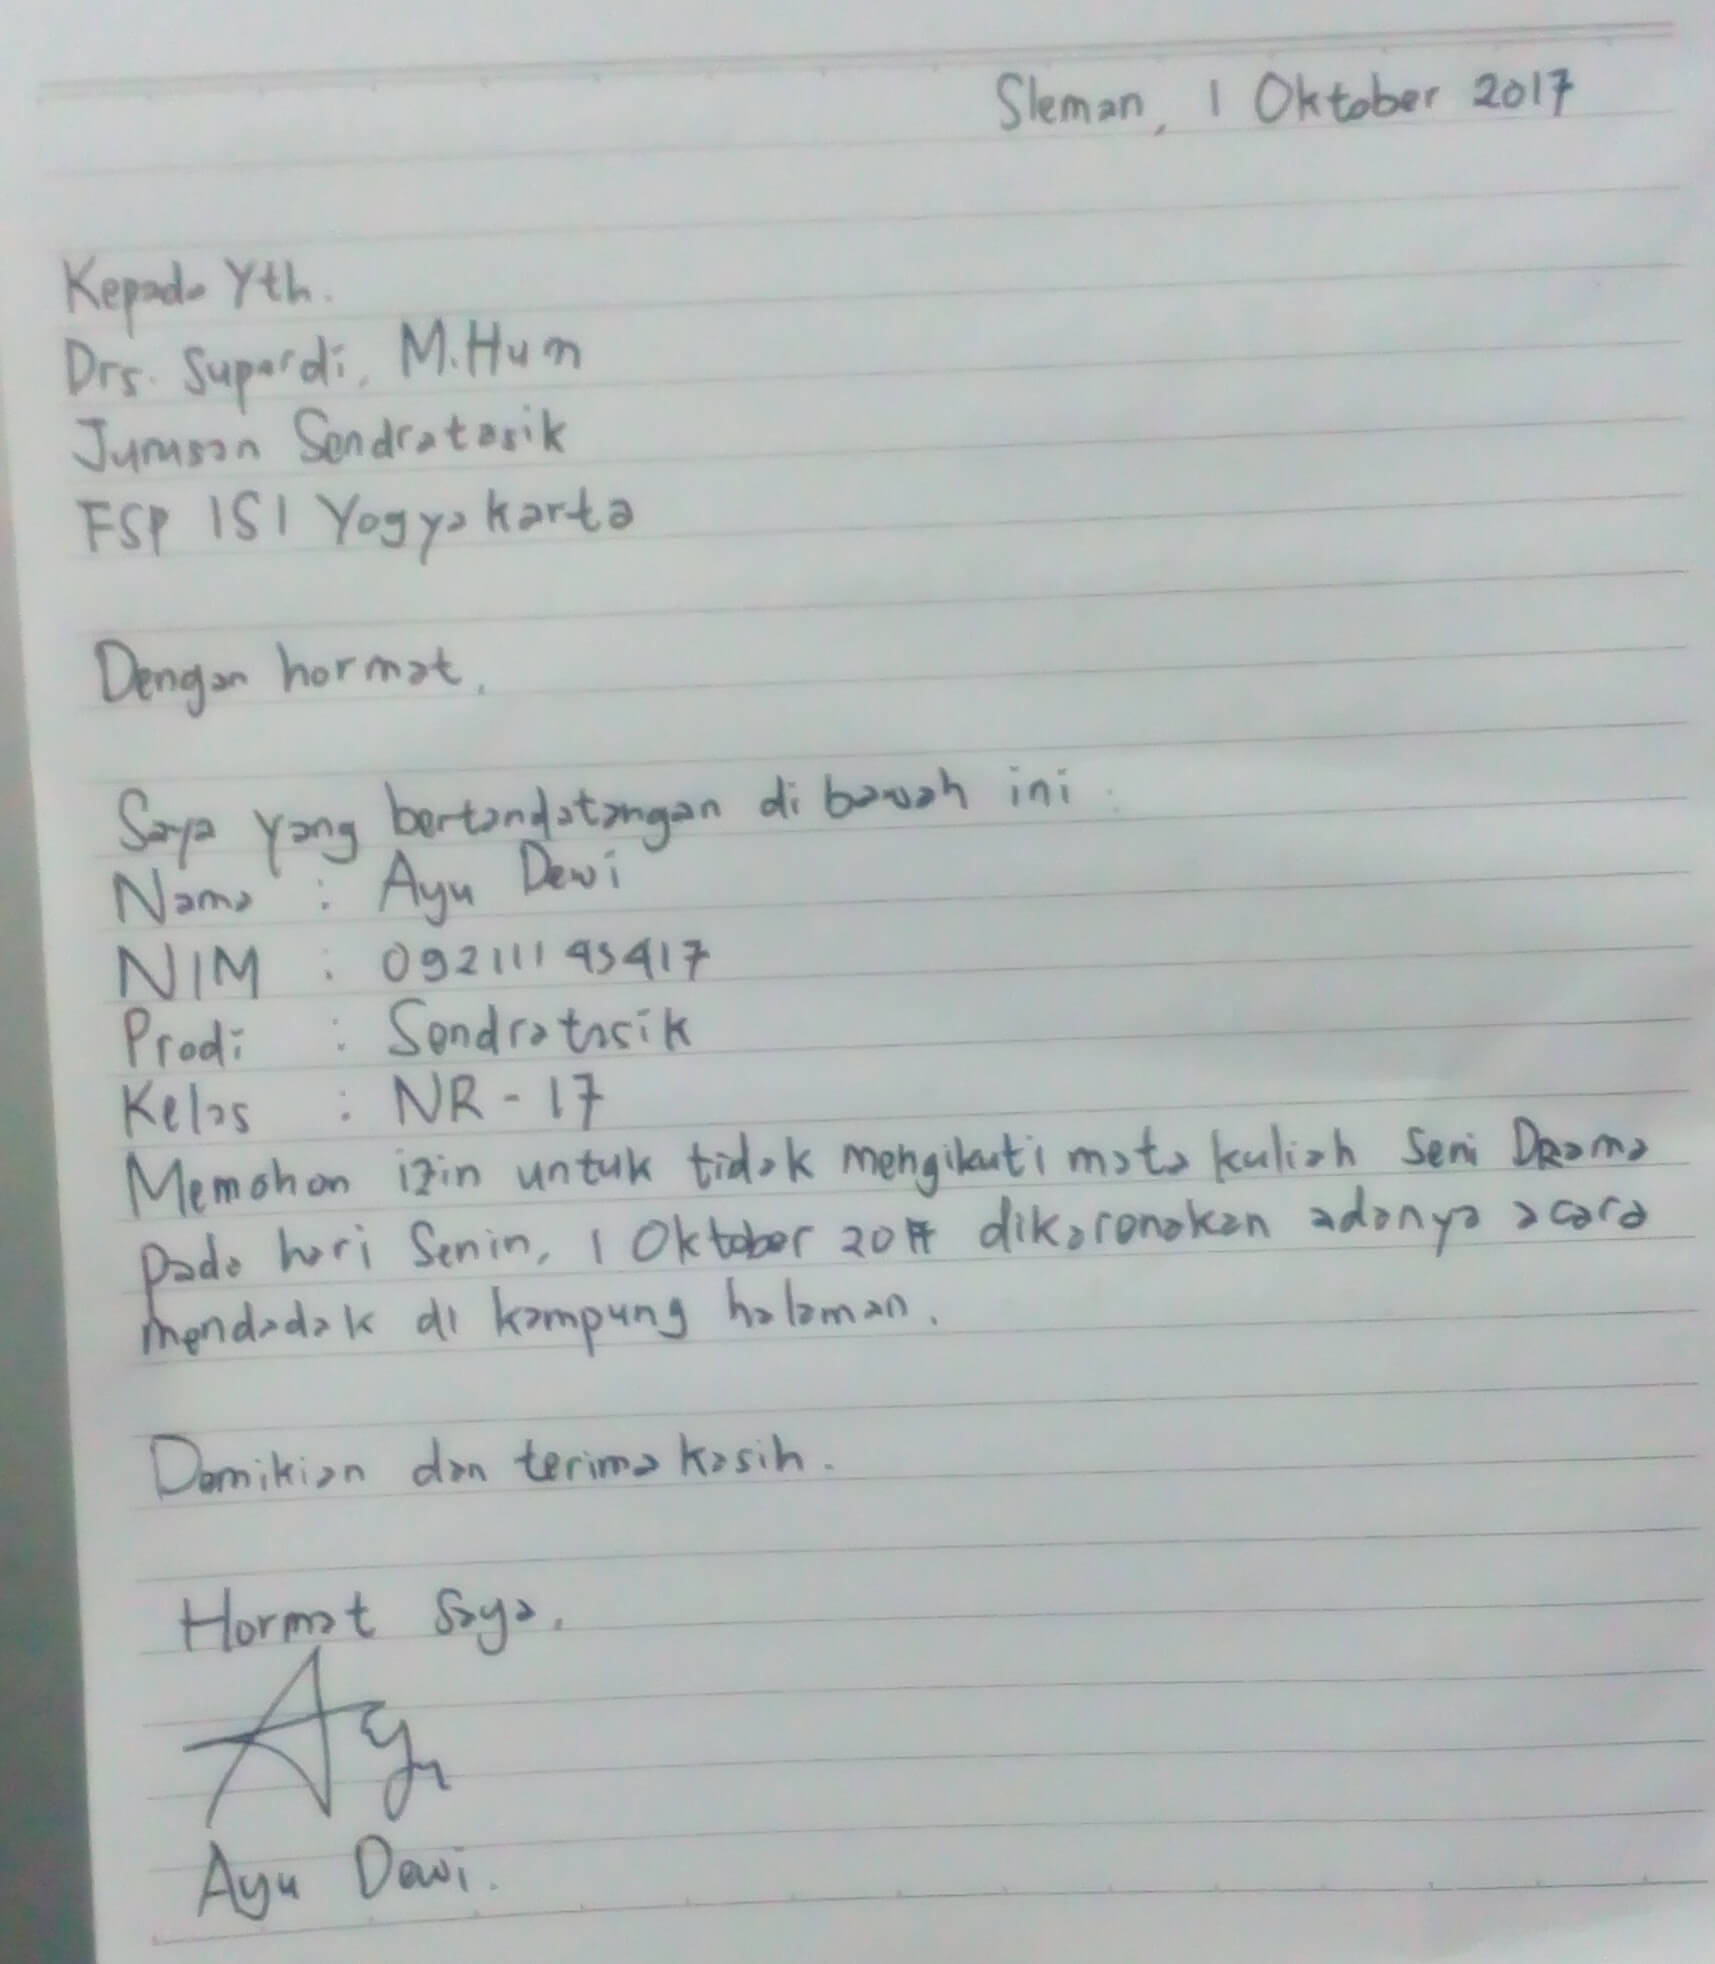 Sleman, 1 Oktober 2017
Kepada Yth.
Drs. Supardi, M.Hum
Jurusan Sendratasik
FSP ISI Yogyakarta
Dengan hormat,
Saya yang bertandatangan di bawah ini :
Nama : Ayu Dewi
NIM : 09211145417
Prodi : Sendratasik
Kelas : NR - 17
Memohon izin untuk tidak mengikuti mata kuliah Seni Drama
pada hari Senin, 1 Oktober 2017 dikarenakan adanya acara
mendadak di kampung halaman.
Demikian dan terima kasih.
Hormat Saya,
Ayu
Ayu Dewi.